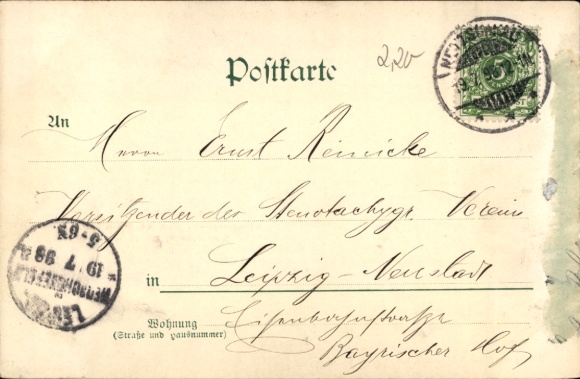 2,20
Postkarte
NETZSCHKAU
5
An
Herrn Ernst Reinicke
Vorsitzender des Stenotachygr. Verein
in Leipzig-Neustadt
Wohnung
(Straße und Hausnummer)
Eisenbahnstraße
Bayrischer Hof
19 7 98
5-6N.